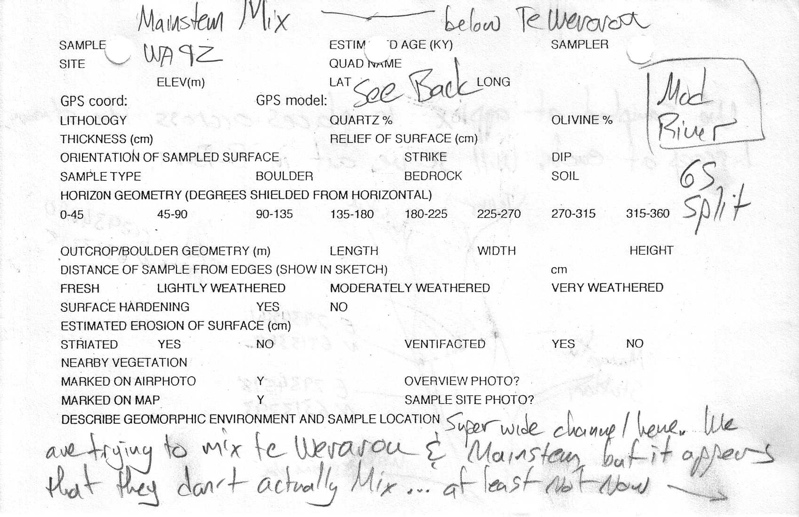 Mainstem Mix — below Te Weraroa
SAMPLE WA9Z ESTIM D AGE (KY) SAMPLER
SITE QUAD NAME
ELEV(m) LAT See Back LONG
GPS coord: GPS model:
Mod
River
LITHOLOGY QUARTZ % OLIVINE %
THICKNESS (cm) RELIEF OF SURFACE (cm)
ORIENTATION OF SAMPLED SURFACE STRIKE DIP
SAMPLE TYPE BOULDER BEDROCK SOIL
GS
split
HORIZ0N GEOMETRY (DEGREES SHIELDED FROM HORIZONTAL)
0-45 45-90 90-135 135-180 180-225 225-270 270-315 315-360
OUTCROP/BOULDER GEOMETRY (m) LENGTH WIDTH HEIGHT
DISTANCE OF SAMPLE FROM EDGES (SHOW IN SKETCH) cm
FRESH LIGHTLY WEATHERED MODERATELY WEATHERED VERY WEATHERED
SURFACE HARDENING YES NO
ESTIMATED EROSION OF SURFACE (cm)
STRIATED YES NO VENTIFACTED YES NO
NEARBY VEGETATION
MARKED ON AIRPHOTO Y OVERVIEW PHOTO?
MARKED ON MAP Y SAMPLE SITE PHOTO?
DESCRIBE GEOMORPHIC ENVIRONMENT AND SAMPLE LOCATION Super wide channel here. We
are trying to mix te Weraroa & Mainstem, but it appears
that they don't actually Mix... at least Not Now →